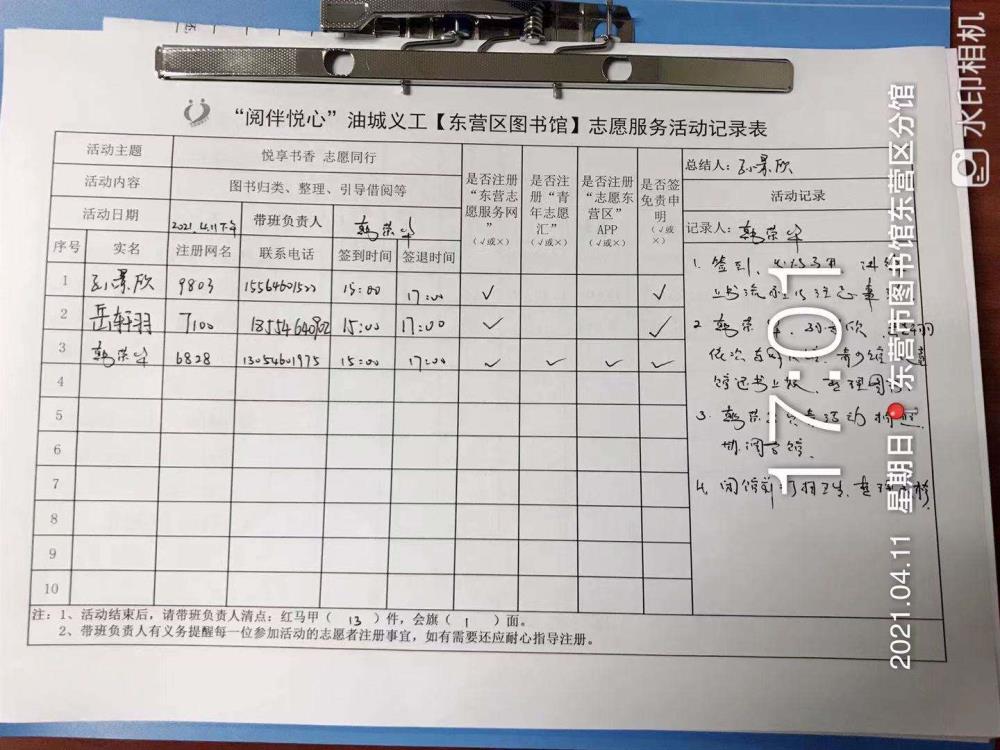 “阅伴悦心”油城义工【东营区图书馆】志愿服务活动记录表
活动主题 悦享书香 志愿同行
活动内容 图书归类、整理、引导借阅等
活动日期 2021.4.11下午 带班负责人 韩荣华
序号 实名 注册网名 联系电话 签到时间 签退时间
是否注册“东营志愿服务网”（√或×）
是否注册“青年志愿汇”（√或×）
是否注册“志愿东营区”APP（√或×）
是否签免责申明（√或×）
1 孙景欣 9803 15:00 17:00 √ √
2 岳轩羽 7100 15:00 17:00 √ √
3 韩荣华 6828 13054601975 15:00 17:00 √ √ √ √
4
5
6
7
8
9
10
总结人：孙景欣
活动记录
记录人：韩荣华
1. 签到、
2. 韩荣华、孙景欣、
依次
馆还书上架、整理图书
3. 韩荣华负责活动拍照
协调
4. 闭馆前打扫卫生、整理
注：1、活动结束后，请带班负责人清点：红马甲（ 13 ）件，会旗（ 1 ）面。
2、带班负责人有义务提醒每一位参加活动的志愿者注册事宜，如有需要还应耐心指导注册。
17:01
2021.04.11 星期日 东营市图书馆东营区分馆
水印相机